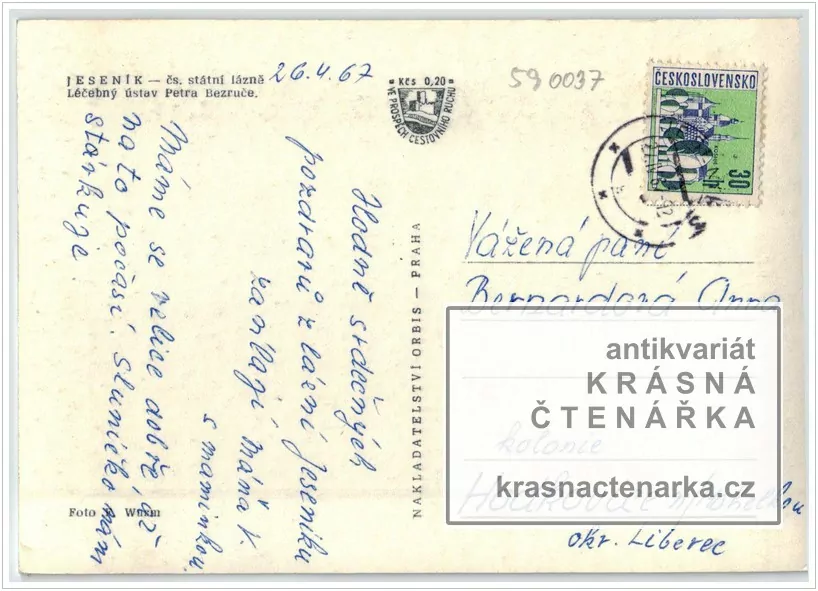 JESENÍK — čs. státní lázně
Léčebný ústav Petra Bezruče.
26.4.67
* Kčs 0,20 *
VE PROSPĚCH CESTOVNÍHO RUCHU
590037
ČESKOSLOVENSKO
30 h
Hodně srdečných
pozdravů z lázní Jeseníku
zasílají Máňa V.
s maminkou.
Máme se velice dobře, až
na to počasí. Sluníčko nám
stávkuje.
NAKLADATELSTVÍ ORBIS — PRAHA
Vážená paní
Bernardová Anna
kolonie
okr. Liberec
Foto Wurm
antikvariát
KRÁSNÁ
ČTENÁŘKA
krasnactenarka.cz